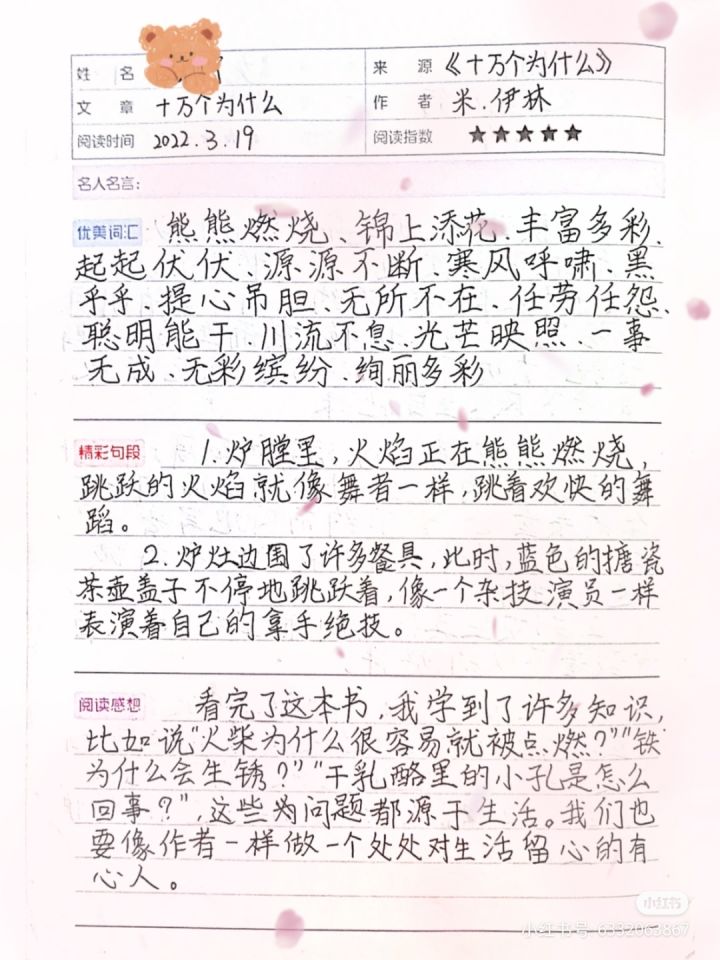 姓 名
来 源 《十万个为什么》
文 章 十万个为什么
作 者 米.伊林
阅读时间 2022.3.19
阅读指数 ★★★★★
名人名言:
优美词汇 熊熊燃烧、锦上添花、丰富多彩、
起起伏伏、源源不断、寒风呼啸、黑
乎乎、提心吊胆、无所不在、任劳任怨、
聪明能干、川流不息、光芒映照、一事
无成、无彩缤纷、绚丽多彩
精彩句段 1.炉膛里,火焰正在熊熊燃烧,
跳跃的火焰就像舞者一样,跳着欢快的舞
蹈。
2.炉灶边围了许多餐具,此时,蓝色的搪瓷
茶壶盖子不停地跳跃着,像一个杂技演员一样
表演着自己的拿手绝技。
阅读感想 看完了这本书,我学到了许多知识,
比如说"火柴为什么很容易就被点燃?""铁
为什么会生锈?""干乳酪里的小孔是怎么
回事?",这些为问题都源于生活。我们也
要像作者一样做一个处处对生活留心的有
心人。
小红书
小红书号: 6332063867